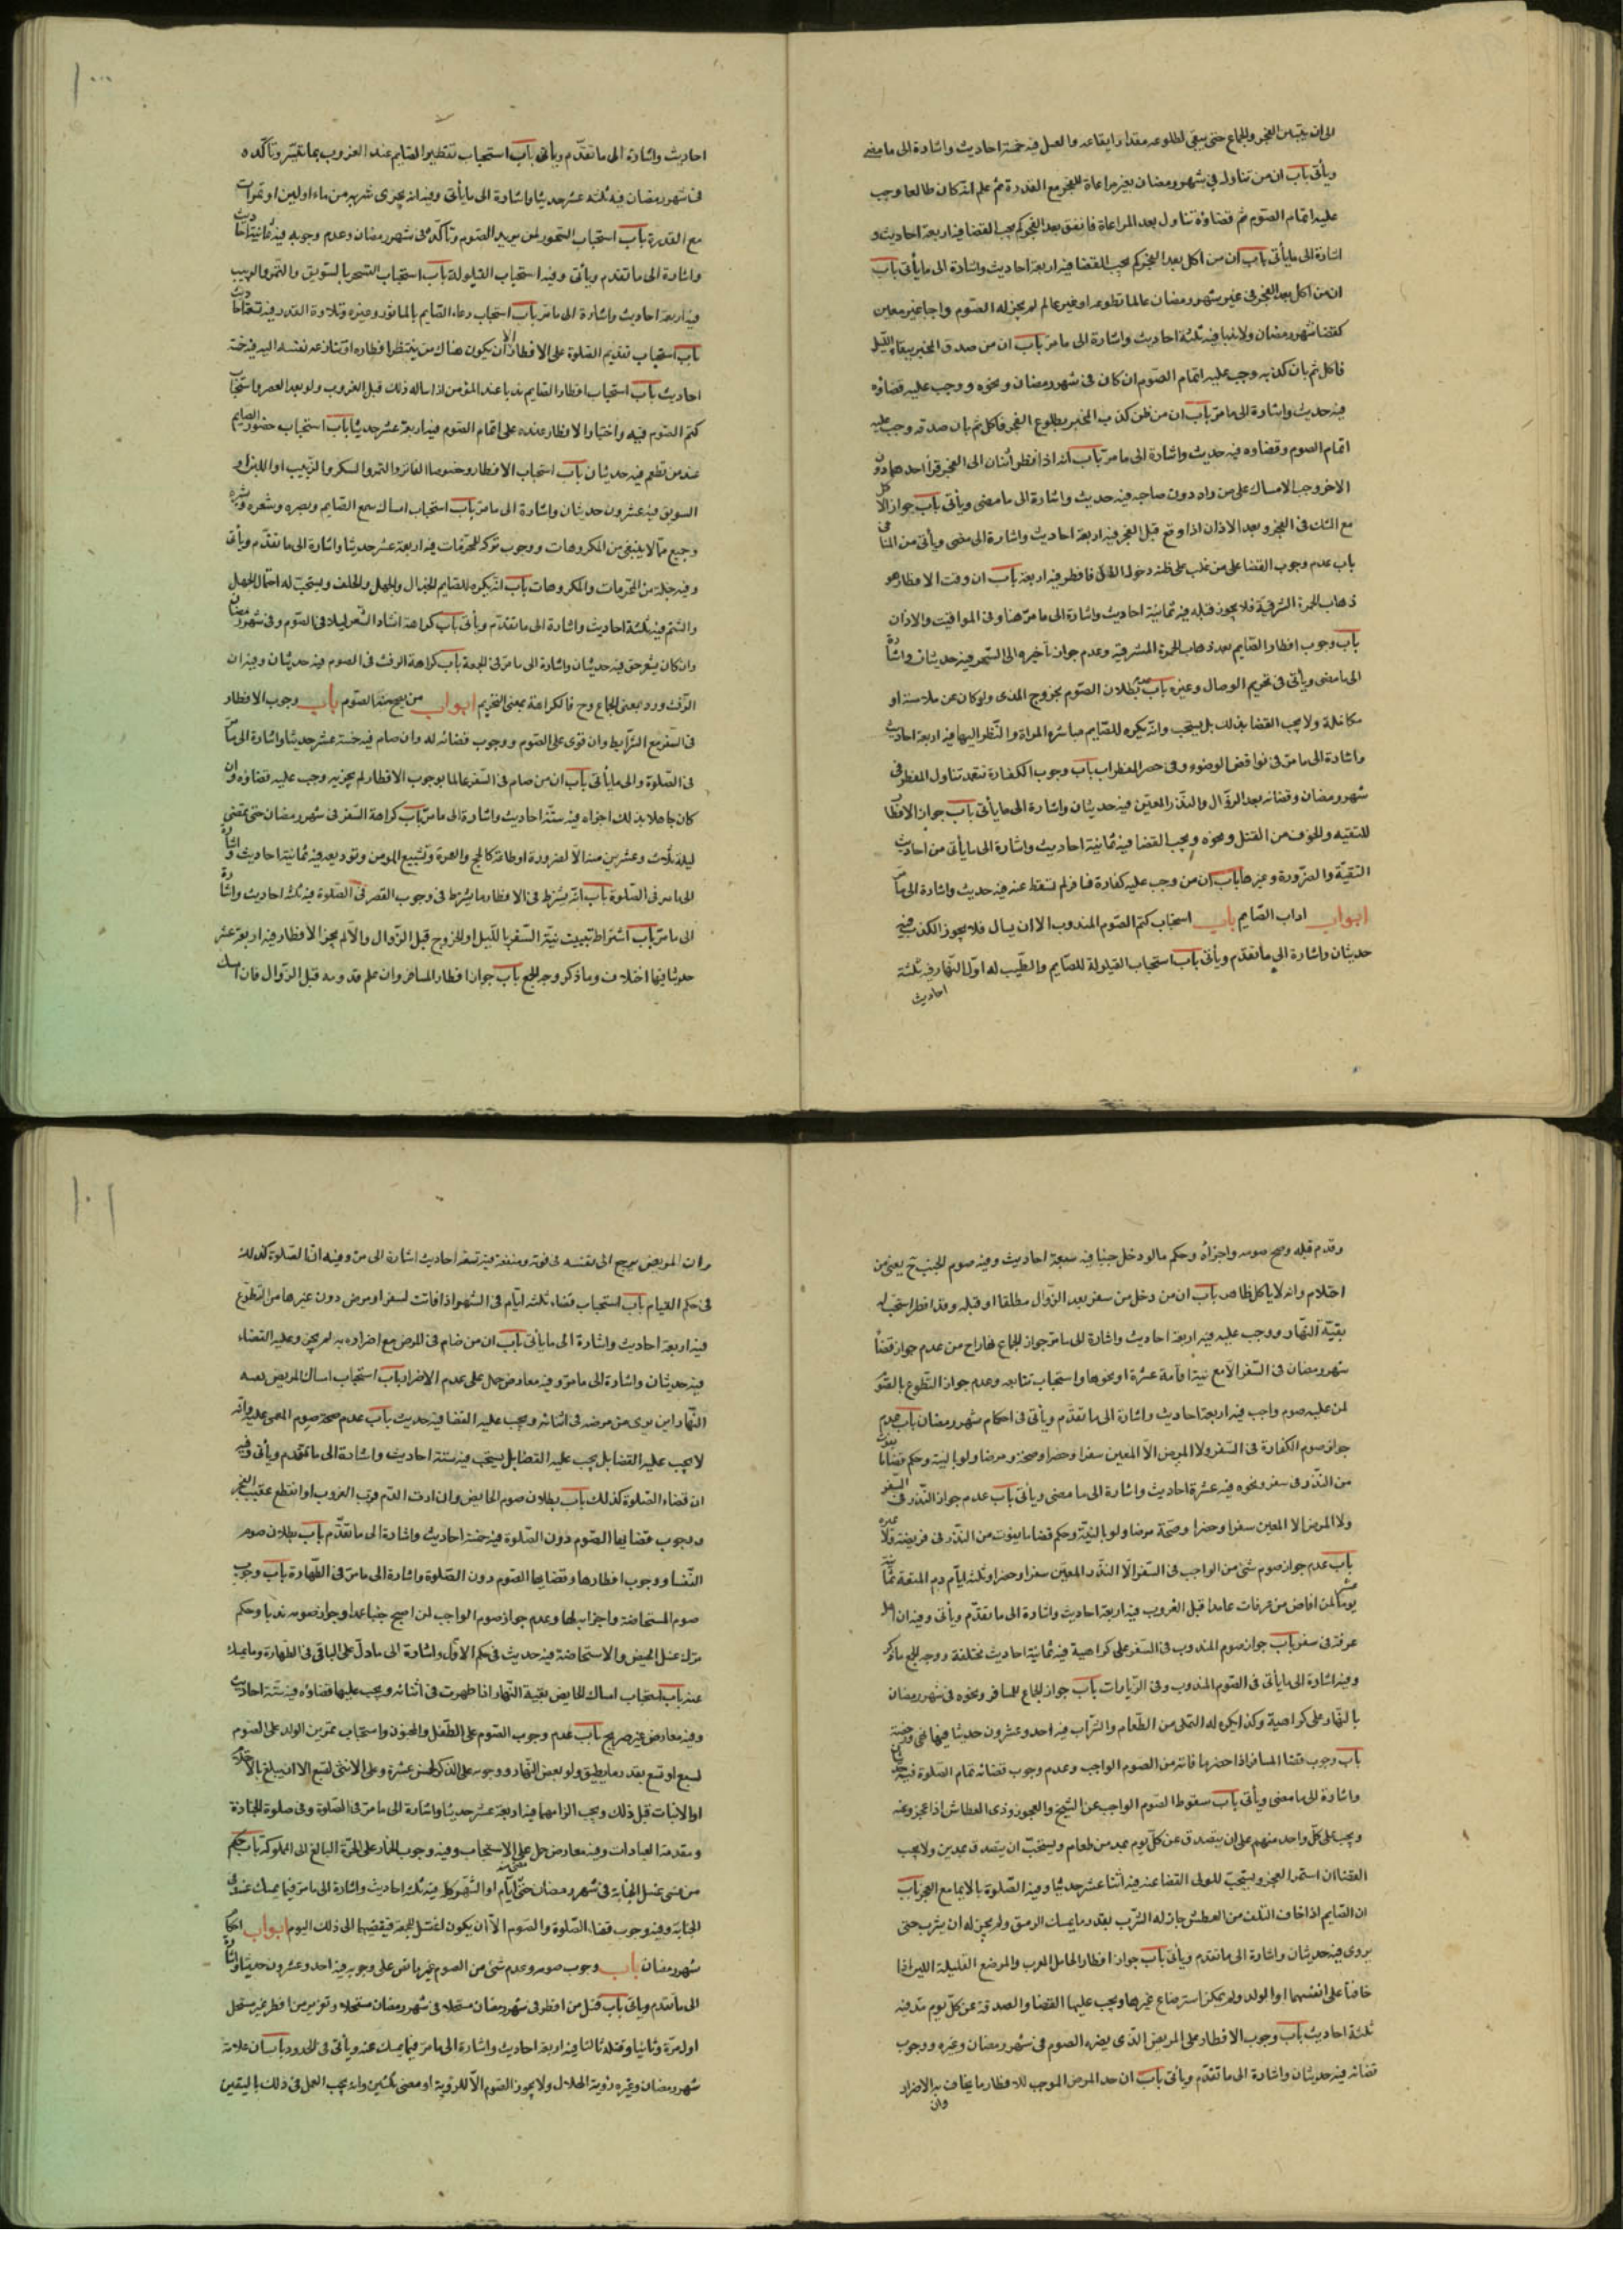 الى ان يتبين الفجر والجماع حتى يبقى لطلوعه مقدار ايقاعه والغسل فيه خمسة احاديث واشارة الى ما مضى
ويأتى باب ان من تناول فى شهر رمضان بغير مراعاة للفجر مع القدرة ثم علم انه كان طالعا وجب
عليه اتمام الصوم ثم قضاؤه وتناول بعد المراعاة فاتفق بعد الفجر لم يجب القضا فيه اربعة احاديث و
اشارة الى ما يأتى باب ان من اكل بعد الفجر لم يجب القضا فيه اربعة احاديث واشارة الى ما يأتى باب
ان من اكل بعد الفجر فى غير شهر رمضان عالما تطوعه او غير عالم لم يجز له الصوم واجبا غير معين
كقضا شهر رمضان ولا ندبا فيه ثلثة احاديث واشارة الى ما مر باب ان من صدق المخبر ببقاء الليل
فاكل ثم بان كذبه وجب عليه اتمام الصوم ان كان فى شهر رمضان ونحوه ووجب عليه قضاؤه
فيه حديث واشارة الى ما مر باب ان من ظن كذب المخبر بطلوع الفجر فاكل ثم بان صدقه وجب عليه
اتمام الصوم وقضاوه فيه حديث واشارة الى ما مر باب انه اذا نظر اثنان الى الفجر فرأ احدهما دون
الاخر وجب الامساك على من راه دون صاحبه فيه حديث واشارة الى ما مضى ويأتى باب جواز الاكل
مع الشك فى الفجر وبعد الاذان اذا وقع قبل الفجر فيه اربعة احاديث واشارة الى مضى ويأتى من المنافى
باب عدم وجوب القضا على من غلب على ظنه دخول الليل فافطر فيه اربعة باب ان وقت الافطار هو
ذهاب الحمرة الشرقية فلا يجوز قبله فيه ثمانية احاديث واشارة الى ما مر هنا وفى المواقيت والاذان
باب وجوب افطار الصايم بعد ذهاب الحمرة المشرقية وعدم جواز تأخيره الى السحر فيه حديثان واشارة
الى ما مضى ويأتى فى تحريم الوصال وغيره باب عدم بطلان الصوم بخروج المذى ولو كان عن ملامسة او
مكالمة ولا يجب القضا بذلك بل يستحب وانه يكره للصايم مباشرة المراة والنظر اليها فيه اربعة احاديث
واشارة الى ما مر فى نواقض الوضوء وفى حصر المفطرات باب وجوب الكفارة بتعمد تناول المفطر فى
شهر رمضان وقضائه بعد الزوال والنذر المعين فيه حديثان واشارة الى ما يأتى باب جواز الافطار
للتقية والخوف من القتل ونحوه ويجب القضا فيه ثمانية احاديث واشارة الى ما يأتى من احاديث
التقية والضرورة وغيرها باب ان من وجب عليه كفارة فسافر لم تسقط عنه فيه حديث واشارة الى ما مر
ابواب اداب الصايم باب استحباب كتم الصوم المندوب الا ان يسال فلا يجوز الكذب فيه
حديثان واشارة الى ما تقدم ويأتى باب استحباب القيلولة للصايم والطيب له اول النهار فيه ثلثة
احاديث
١٠٠
احاديث واشارة الى ما تقدم ويأتى باب استحباب تفطير الصايم عند الغروب بما تيسر وتأكده
فى شهر رمضان فيه ثلثة عشر حديثا واشارة الى ما يأتى وفيه انه يجزى شربة من ماء او لبن او تمرات
مع القدرة باب استحباب السحور لمن يريد الصوم وتأكده فى شهر رمضان وعدم وجوبه فيه ثمانية احاديث
واشارة الى ما تقدم ويأتى وفيه استحباب القيلولة باب استحباب التسحر بالسويق والتمر والزبيب
فيه اربعة احاديث واشارة الى ما مر باب استحباب دعاء الصايم بالماثور وغيره وتلاوة القدر فيه تسعة احاديث
باب استحباب تقديم الصلوة على الافطار الا ان يكون هناك من ينتظر افطاره او تنازعه نفسه اليه فيه خمسة
احاديث باب استحباب افطار الصايم ندبا عند المؤمن اذا ساله ذلك قبل الغروب ولو بعد العصر واستحباب
كتم الصوم فيه واختيار الافطار عنده على اتمام الصوم فيه اربعة عشر حديثا باب استحباب حضور الصايم
عند من تطعم فيه حديثان باب استحباب الافطار وخصوصا الفاتر والتمر والسكر والزبيب او اللبن او
السويق فيه عشرون حديثان واشارة الى ما مر باب استحباب امساك سمع الصايم وبصره وشعره وبشره
وجميع ما لا ينبغى من المكروهات ووجوب تركه للمحرمات فيه اربعة عشر حديثا واشارة الى ما تقدم ويأتى
وفيه جملة من المحرمات والمكروهات باب انه يكره للصايم الجدال والجهل والحلف ويستحب له احتمال الجهل
والشتم فيه ثلثة احاديث واشارة الى ما تقدم ويأتى باب كراهة انشاد الشعر ليلا فى الصوم وفى شهر رمضان
وان كان شعر حق فيه حديثان واشارة الى ما مر فى الجمعة باب كراهة الرفث فى الصوم فيه حديثان وفيه ان
الرفث ورد بمعنى الجماع وح فالكراهة بمعنى التحريم ابواب من يصح منه الصوم باب وجوب الافطار
فى السفر مع الشرايط وان قوى على الصوم ووجوب قضائه له وان صام فيه خمسة عشر حديثا واشارة الى ما مر
فى الصلوة والى ما يأتى باب ان من صام فى السفر عالما بوجوب الافطار لم يجزيه وجب عليه قضاؤه وان
كان جاهلا بذلك اجزاه فيه ستة احاديث واشارة الى ما مر باب كراهة السفر فى شهر رمضان حتى تمضى
ليلة ثلث وعشرين منه الا لضرورة او طاعة كالحج والعمرة وتشييع المومن وتوديعه فيه ثمانية احاديث واشارة
الى ما مر فى الصلوة باب انه يشترط فى الافطار ما يشترط فى وجوب القصر فى الصلوة فيه ثلثة احاديث واشارة
الى ما مر باب اشتراط تبييت نية السفر بالليل او الخروج قبل الزوال والا لم يجز الافطار فيه اربعة عشر
حديثا فيها اختلاف وما ذكر وجه الجمع باب جواز افطار المسافر وان علم قدومه قبل الزوال فان امسك
وقدم قبله وصح صومه واجزأه وحكم ما لو دخل جنبا فيه سبعة احاديث وفيه صوم الجنب ح يعنى من
احتلام وانه لا ياكل ظاهر باب ان من دخل من سفر بعد الزوال مطلقا او قبله وقد افطر استحب له
بقية النهار ووجب عليه فيه اربعة احاديث واشارة الى ما مر جواز الجماع نهارا ح من عدم جواز قضأ
شهر رمضان فى السفر الا مع نية اقامة عشرة او نحوها واستحباب تتابعه وعدم جواز التطوع بالصوم
لمن عليه صوم واجب فيه اربعة احاديث واشارة الى ما تقدم ويأتى فى احكام شهر رمضان باب عدم
جواز صوم الكفارة فى السفر ولا المرض الا المعين سفرا وحضرا وصحة ومرضا ولو بالنية وحكم قضا ما يفوت
من النذر فى سفر ونحوه فيه عشرة احاديث واشارة الى ما مضى ويأتى باب عدم جواز النذر فى السفر
ولا المرض الا المعين سفرا وحضرا وصحة مرضا ولو بالنية وحكم قضا ما يفوت من النذر فى فريضة ولا غيره
باب عدم جواز صوم شئ من الواجب فى السفر الا النذر المعين سفرا وحضرا وثلثة ايام دم المتعة ثمانية عشر
يوما لمن افاض من عرفات عامدا قبل الغروب فيه اربعة احاديث واشارة الى ما تقدم ويأتى وفيه ان اهل
عرفة فى سفر باب جواز صوم المندوب فى السفر على كراهية فيه ثمانية احاديث مختلفة ووجه الجمع ما ذكر
وفيه اشارة الى ما يأتى فى الصوم المندوب وفى الزيارات باب جواز الجماع للمسافر ونحوه فى شهر رمضان
بالنهار على كراهية وكذا يكره له التملى من الطعام والشراب فيه احد وعشرون حديثا فيها نهى ورخصة
باب وجوب قضا المسافر اذا حضر ما فاته من الصوم الواجب وعدم وجوب قضائه تمام الصلوة فيه
واشارة الى ما مضى ويأتى باب سقوط الصوم الواجب عن الشيخ والعجوز وذى العطاش اذا عجزوا عنه
ويجب على كل واحد منهم على ان يتصدق عن كل يوم بمد من طعام ويستحب ان يتصدق بمدين ولا يجب
القضا ان استمر العجز ويستحب للولى القضا عنه فيه اثنا عشر حديثا وفيه الصلوة بالايما مع العجز باب
ان الصايم اذا خاف التلف من العطش جاز له الشرب بقدر ما يمسك الرمق ولم يجز له ان يشرب حتى
يروى فيه حديثان واشارة الى ما تقدم ويأتى باب جواز افطار الحامل المقرب والمرضع القليلة اللبن اذا
خافتا على انفسهما او الولد ولم يمكن استرضاع غيرها ويجب عليها القضا والصدقة عن كل يوم بمد فيه
ثلثة احاديث باب وجوب الافطار على المريض الذى يضره الصوم فى شهر رمضان وغيره ووجوب
قضائه فيه حديثان واشارة الى ما تقدم ويأتى باب ان حد المرض الموجب للافطار ما يخاف به الاضرار
وان
١٠١
وان المريض يرجع الى نفسه فى قوته وضعفه فيه تسعة احاديث اشارة الى مر وفيه ان الصلوة كذلك
فى حكم القيام باب استحباب قضاء ثلثة ايام فى الشهر اذا فاتت لسفر او مرض دون غيرها من التطوع
فيه اربعة احاديث واشارة الى ما يأتى باب ان من صام فى المرض مع اضراره به لم يجز وعليه القضاء
فيه حديثان واشارة الى ما مر وفيه معارض حمل على عدم الاضرار باب استحباب امساك المريض بقية
النهار ان برى من مرضه فى اثنائه ويجب عليه القضا فيه حديث باب عدم صحة صوم المغمى عليه وانه
لا يجب عليه القضا بل يجب عليه القضا بل يستحب فيه ستة احاديث واشارة الى ما تقدم ويأتى وفيه
ان قضاء الصلوة كذلك باب بطلان صوم الحايض وان رات الدم قرب الغروب او انقطع عقيب الفجر
ووجوب قضايها الصوم دون الصلوة فيه خمسة احاديث واشارة الى ما تقدم باب بطلان صوم
النفسا ووجوب افطارها وقضايها الصوم دون الصلوة واشارة الى ما مر فى الطهارة باب وجوب
صوم المستحاضة واجزايه لها وعدم جواز صوم الواجب لمن اصبح جنبا عمدا وجواز صومه ندبا وحكم
ترك غسل الحيض والاستحاضة فيه حديث فى حكم الاول واشارة الى ما دل على الباقى فى الطهارة وما يمسك
عنه باب استحباب امساك الحايض بقية النهار اذا طهرت فى اثنائه ويجب عليها قضاؤه فيه ستة احاديث
وفيه معارض غير صريح باب عدم وجوب الصوم على الطفل والمجنون واستحباب تمرين الولد على الصوم
لسبع او تسع بقدر ما يطيق ولو بعض النهار ووجوبه على الذكر لخمس عشرة وعلى الانثى لتسع الا ان يبلغ بالاحتلام
او الانبات قبل ذلك ويجب الزامهما فيه اربعة عشر حديثا واشارة الى ما مر فى الصلوة وفى صلوة الجنازة
ومقدمة العبادات وفيه معارض حمل على الاستحباب وفيه وجوب الخمار على الحرة البالغ الى المملوكة باب حكم
من نسى غسل الجنابة فى شهر رمضان حتى مضى ايام او الشهر كله فيه ثلثة احاديث واشارة الى ما مر فيما يمسك عنه وفى
الجنابة وفيه وجوب قضاء الصلوة والصوم الا ان يكون اغتسل للجمعة فيقضيهما الى ذلك اليوم ابواب احكام
شهر رمضان باب وجوب صومه وعدم شئ من الصوم غير ما نص على وجوبه فيه احد وعشرون حديثا واشارة
الى ما تقدم ويأتى باب قتل من افطر فى شهر رمضان مستحله فى شهر رمضان مستحله وتعزير من افطر غير مستحل
اول مرة وثانيا وقتله ثالثا فيه اربعة احاديث واشارة الى ما مر فيما يمسك عنه ويأتى فى الحدود باب ان علامة
شهر رمضان وغيره رؤية الهلال ولا يجوز الصوم الا للرؤية او مضى ثلثين وانه يجب العمل فى ذلك باليقين